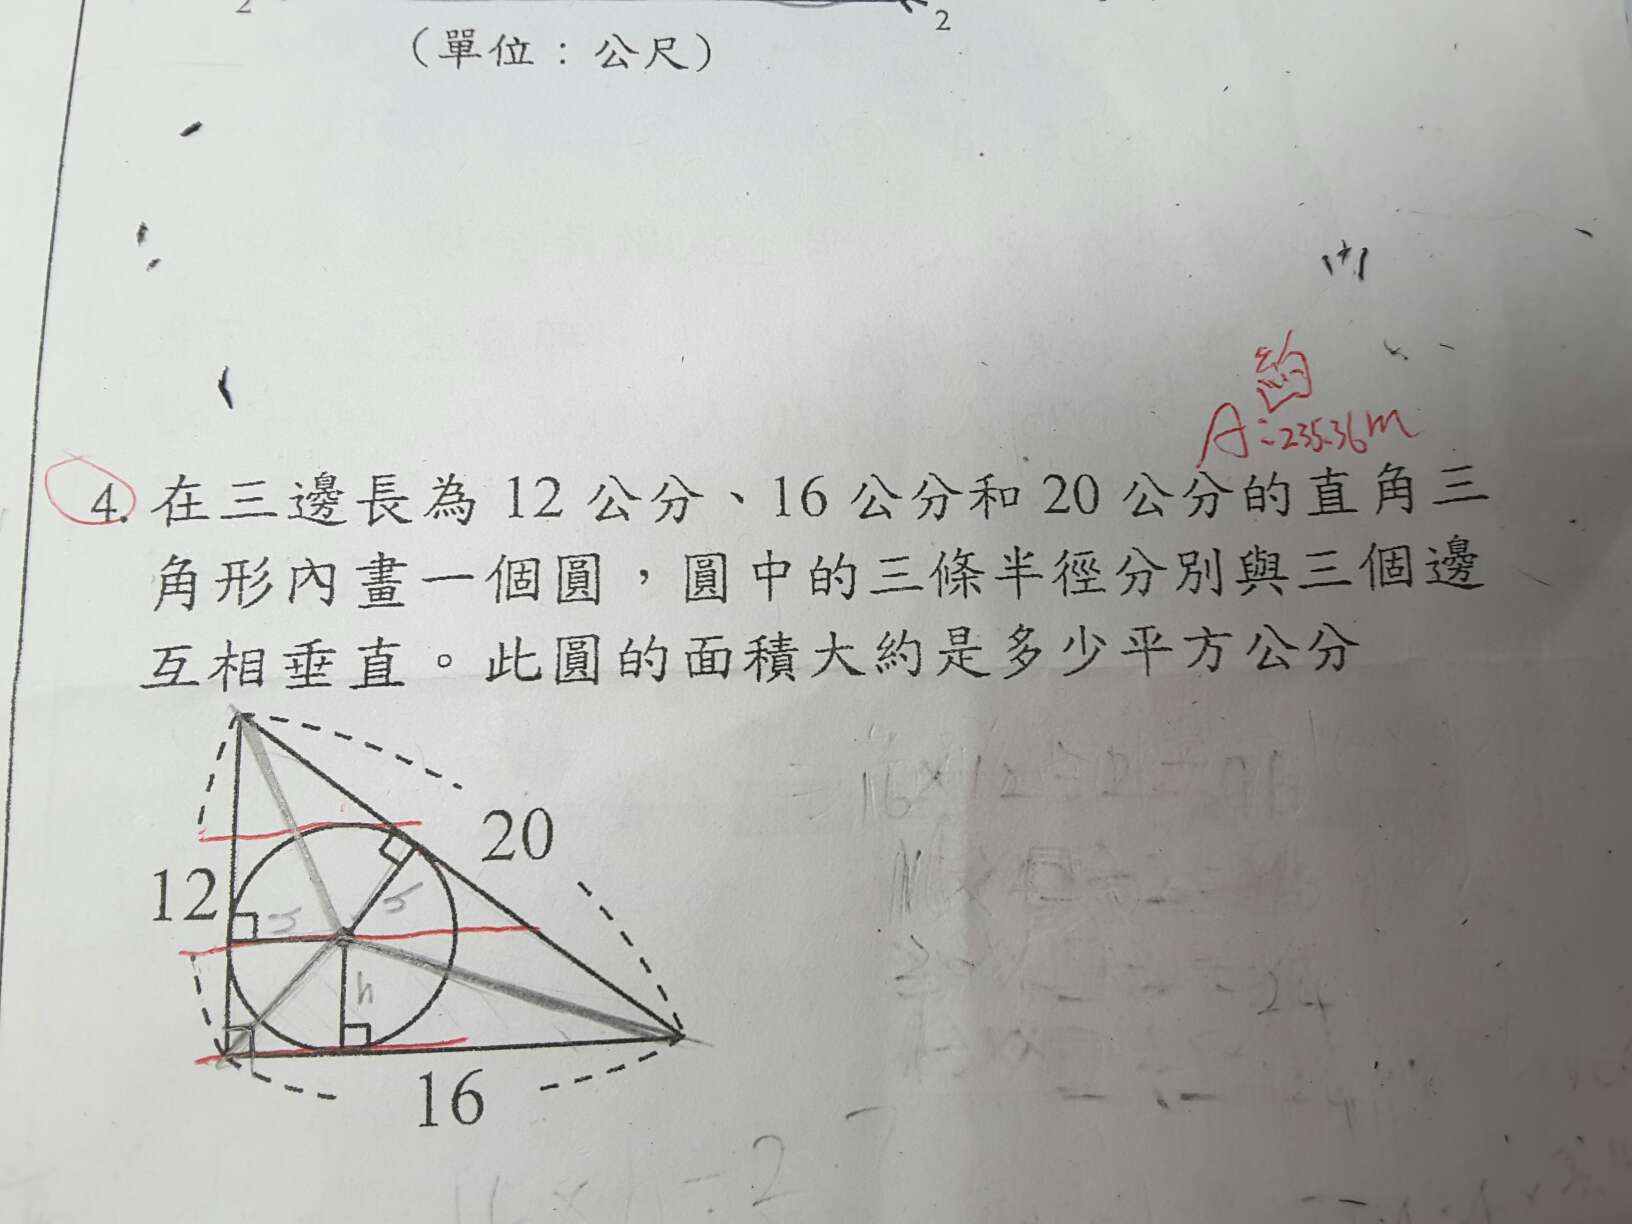 2
2
（單位：公尺）
約
A:235.36m
4. 在三邊長為 12 公分、16 公分和 20 公分的直角三
角形內畫一個圓，圓中的三條半徑分別與三個邊
互相垂直。此圓的面積大約是多少平方公分
20
12
h
16
16×12÷2=96